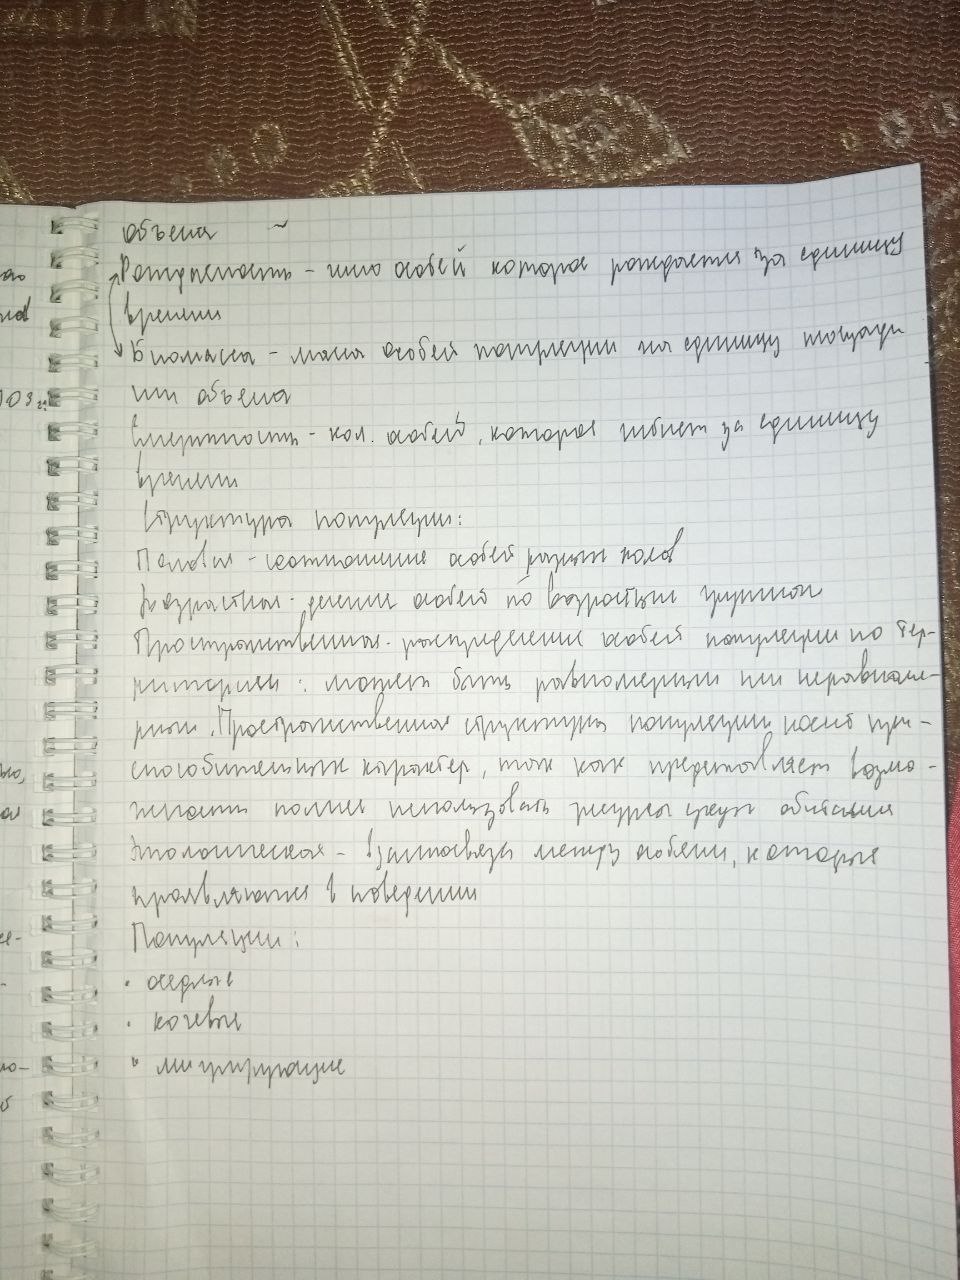 объема
Рождаемость - число особей которое рождается за единицу
времени
Биомасса - масса особей популяции на единицу площади
или объема
Смертность - кол. особей, которое гибнет за единицу
времени
Структура популяции:
Половая - соотношение особей разных полов
Возрастная - деление особей по возрастным группам
Пространственная - распределение особей популяции по тер-
ритории: может быть равномерным или неравноме-
рным. Пространственная структура популяции носит при-
способительный характер, так как представляет возмо-
жность полнее использовать ресурсы среды обитания
Этологическая - взаимосвязь между особями, которые
проявляются в поведении
Популяции:
· оседлые
· кочевые
· мигрирующие
103